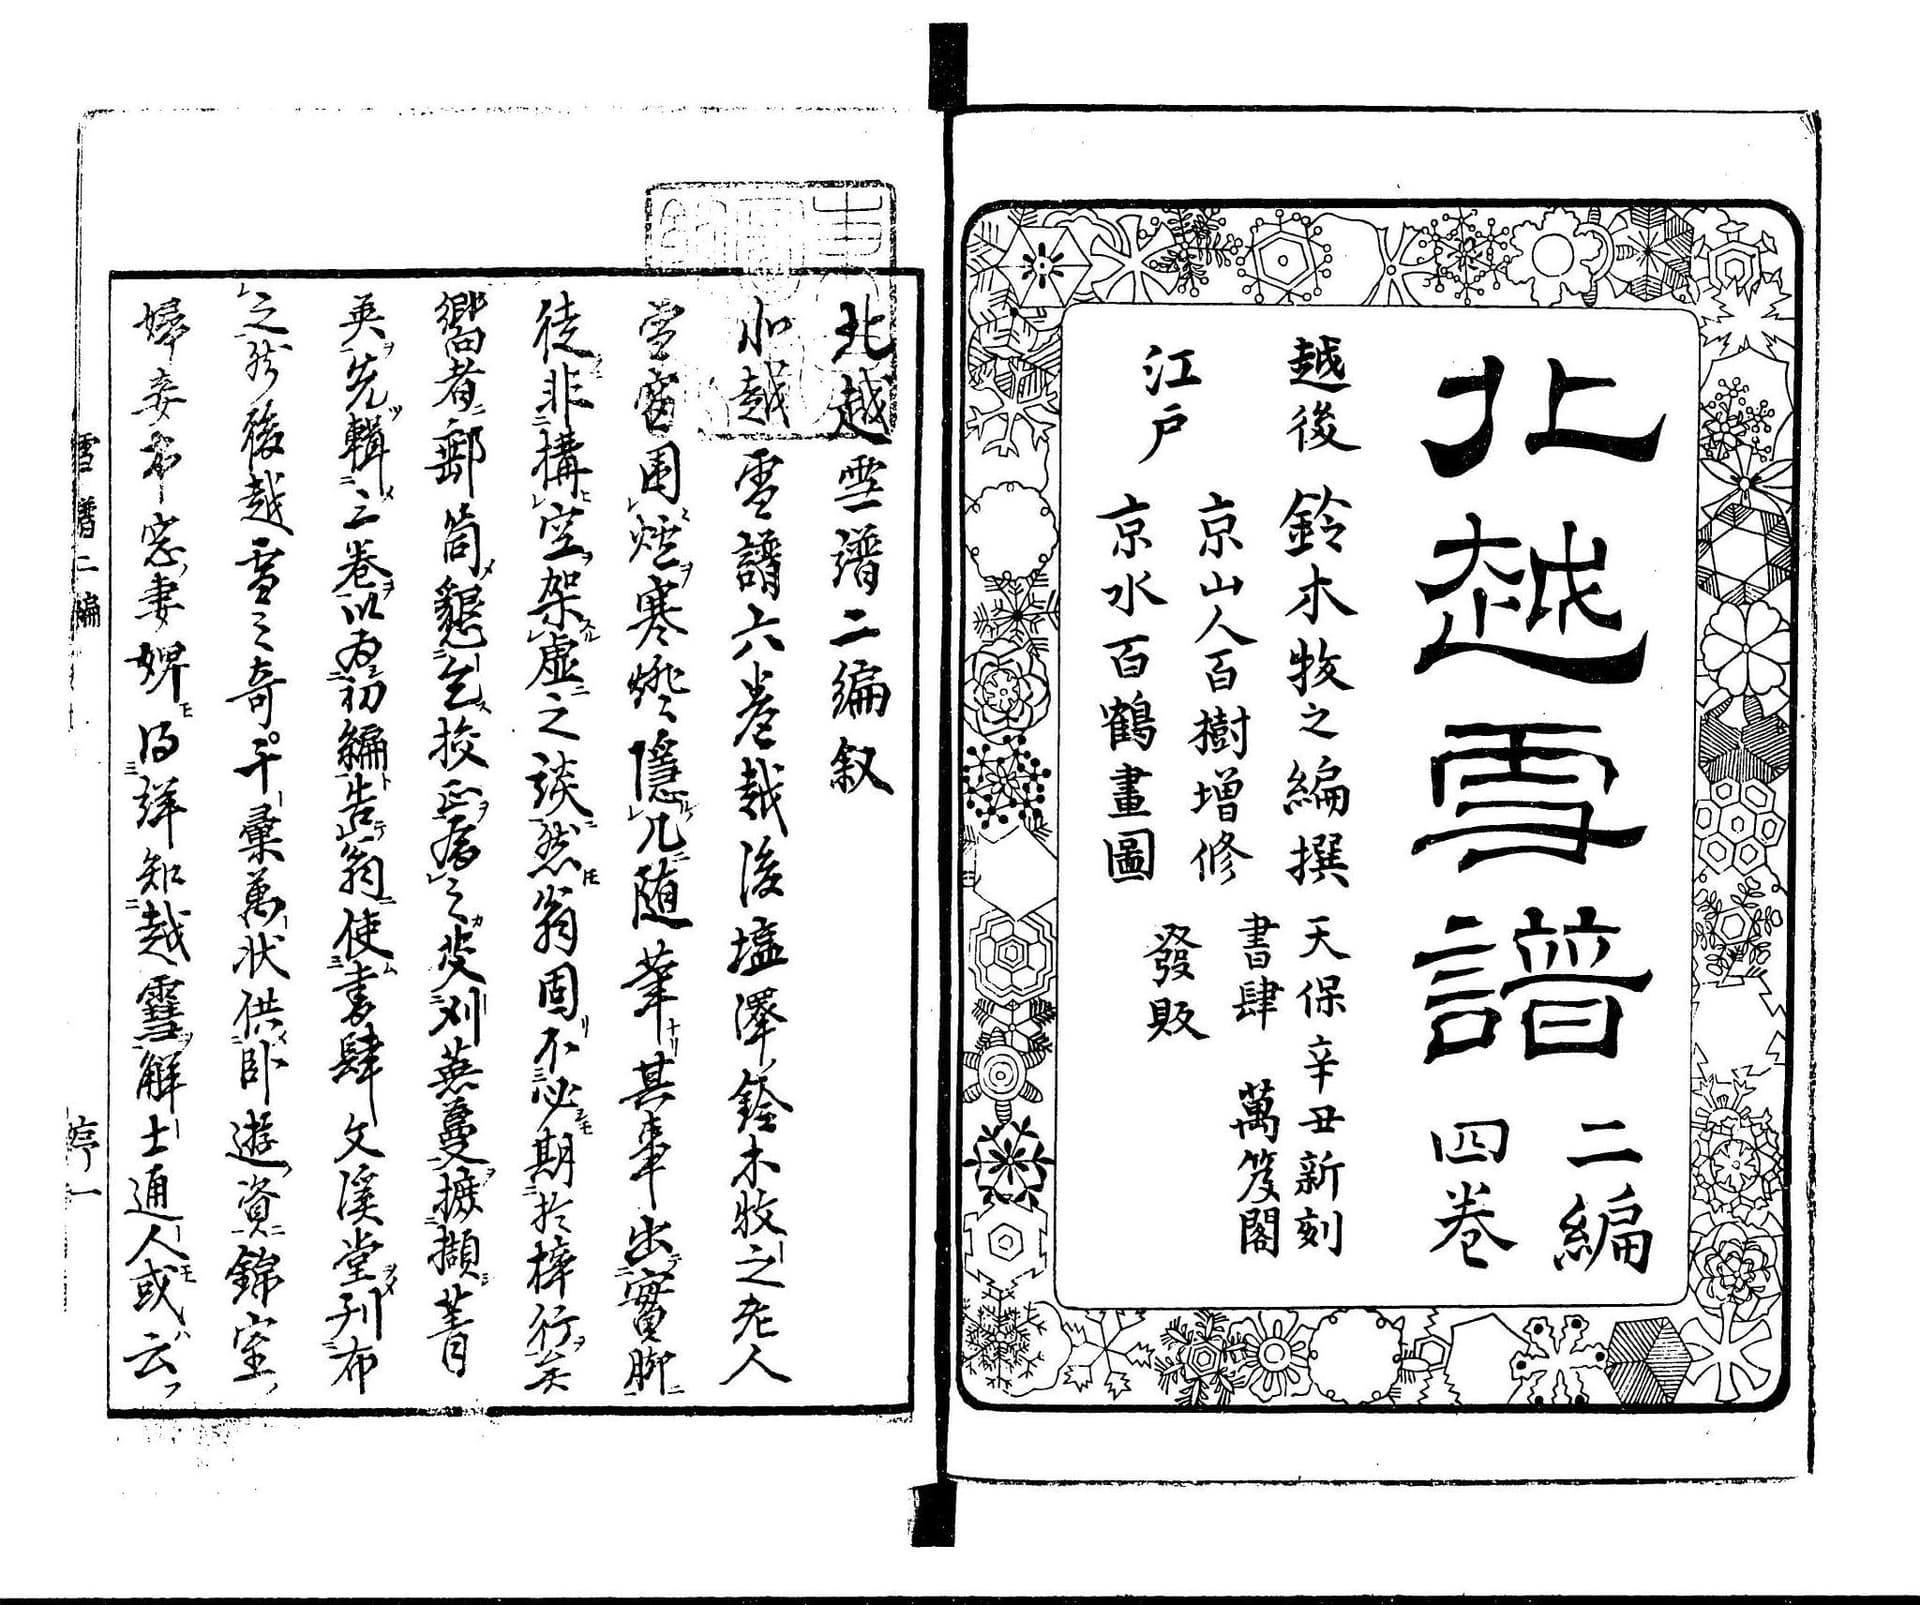 北越雪譜
二編
四巻
越後 鈴木牧之編撰
江戸 京山人百樹増修
京水百鶴畫圖
天保辛丑新刻
書肆 萬笈閣
發販
北越雪譜二編叙
北越雪譜六巻越後塩澤鈴木牧之老人
雪窗囲炉寒燈隠几随筆其事出實脚
徒非構空架虚之談然翁固不必期於梓行矣
嚮者郵筒懇乞挍正為之芟刈蕪蔓摭擷菁
英先輯三巻以為初編告翁使書肆文溪堂刊布
之然後越雪之奇千彙萬状供卧遊資錦室
婦妾市窓妻婢得詳知越雪解士通人或云
雪譜二編
序一